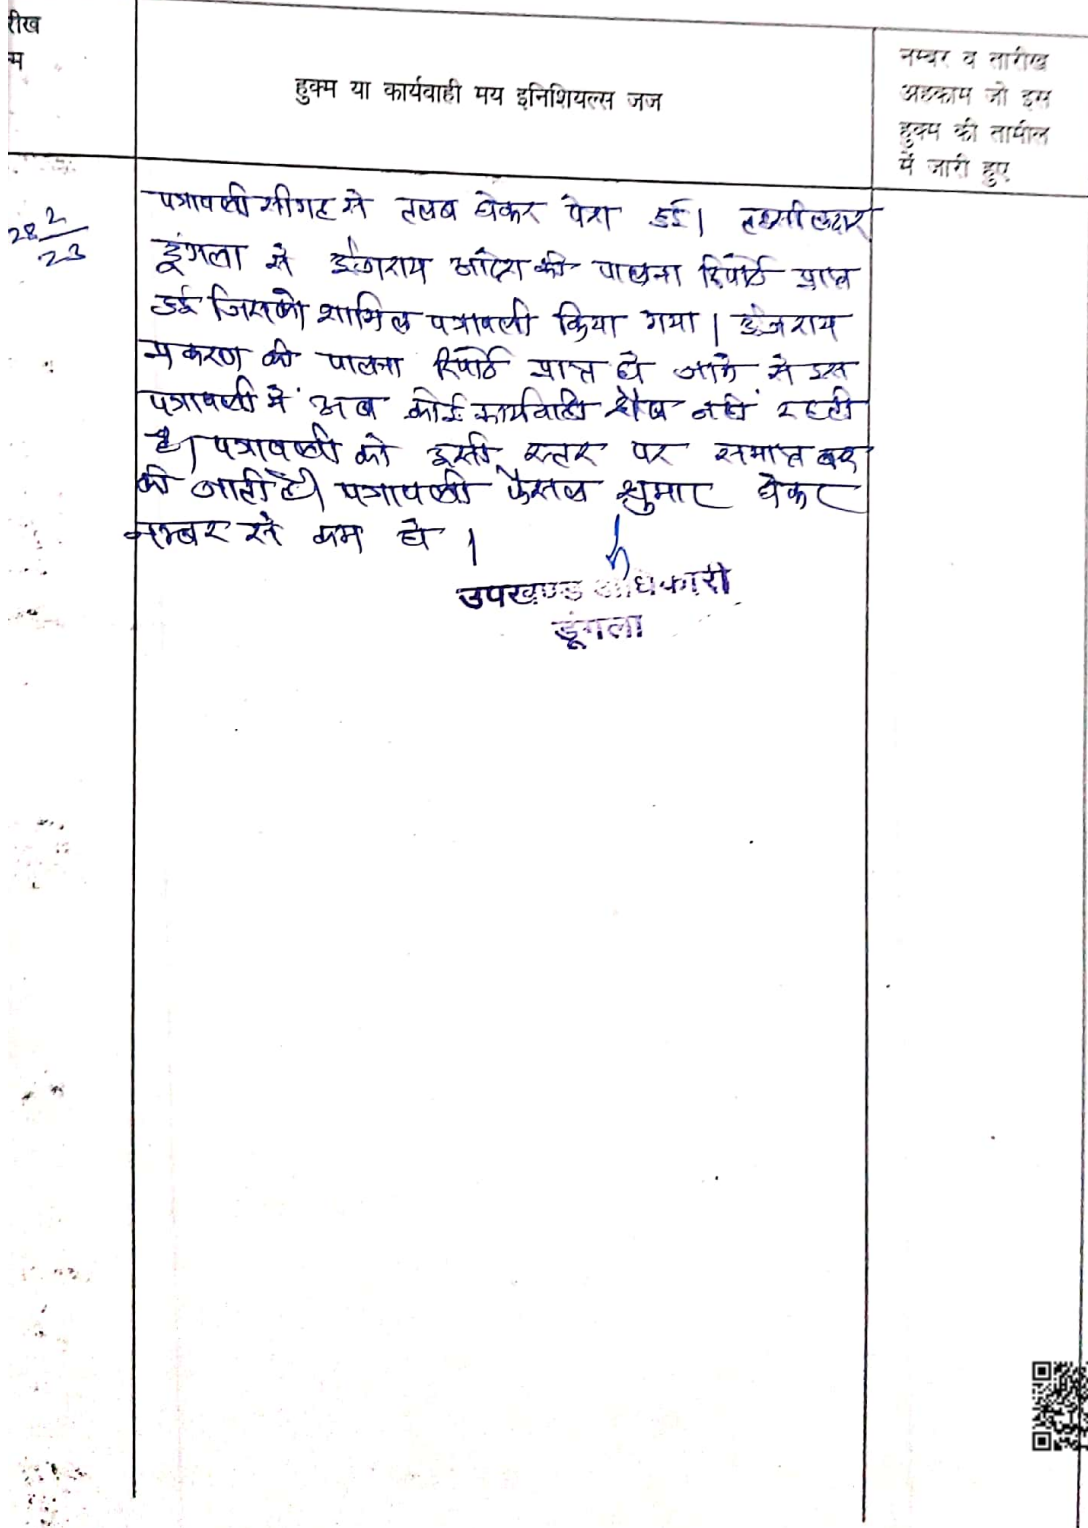 रीख
म
हुक्म या कार्यवाही मय इनिशियल्स जज
नम्बर व तारीख
अहकाम जो इस
हुक्म की तामील
में जारी हुए
28 2/23
पत्रावली सीगट से तलब होकर पेश हुई। तहसीलदार
डूंगला से इजराय आदेश की पालना रिपोर्ट प्राप्त
हुई जिसको शामिल पत्रावली किया गया। इजराय
प्रकरण की पालना रिपोर्ट प्राप्त हो जाने से इस
पत्रावली में अब कोई कार्यवाही शेष नहीं रहती
है। पत्रावली को इसी स्तर पर समाप्त कर
की जाती है। पत्रावली फैसल शुमार होकर
नम्बर से कम हो।
उपखण्ड अधिकारी
डूंगला